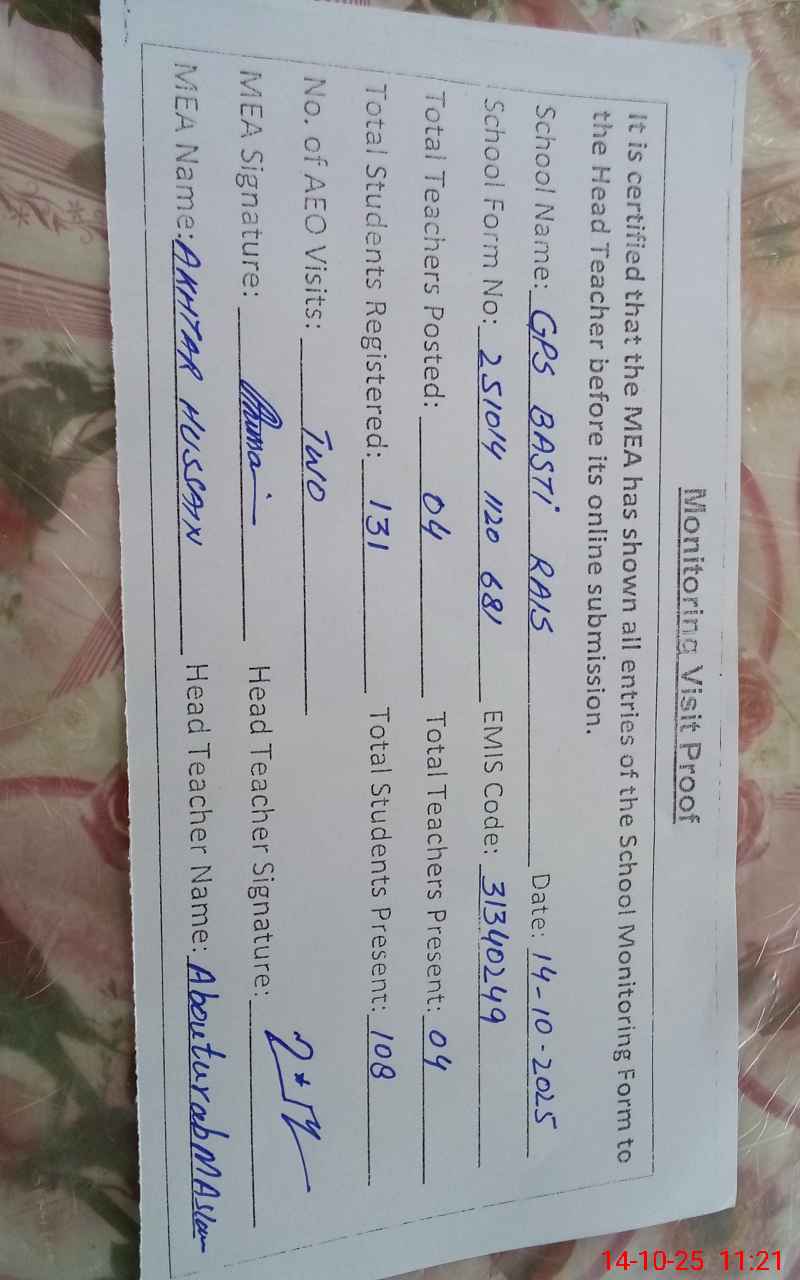 Monitoring Visit Proof
It is certified that the MEA has shown all entries of the School Monitoring Form to
the Head Teacher before its online submission.
School Name: GPS BASTI RAIS Date: 14-10-2025
School Form No: 251014 1120 681 EMIS Code: 31340249
Total Teachers Posted: 04 Total Teachers Present: 04
Total Students Registered: 131 Total Students Present: 108
No. of AEO Visits: TWO
MEA Signature: Head Teacher Signature:
MEA Name: AKHTAR HUSSAIN Head Teacher Name: Abouturab M Aslam
14-10-25 11:21